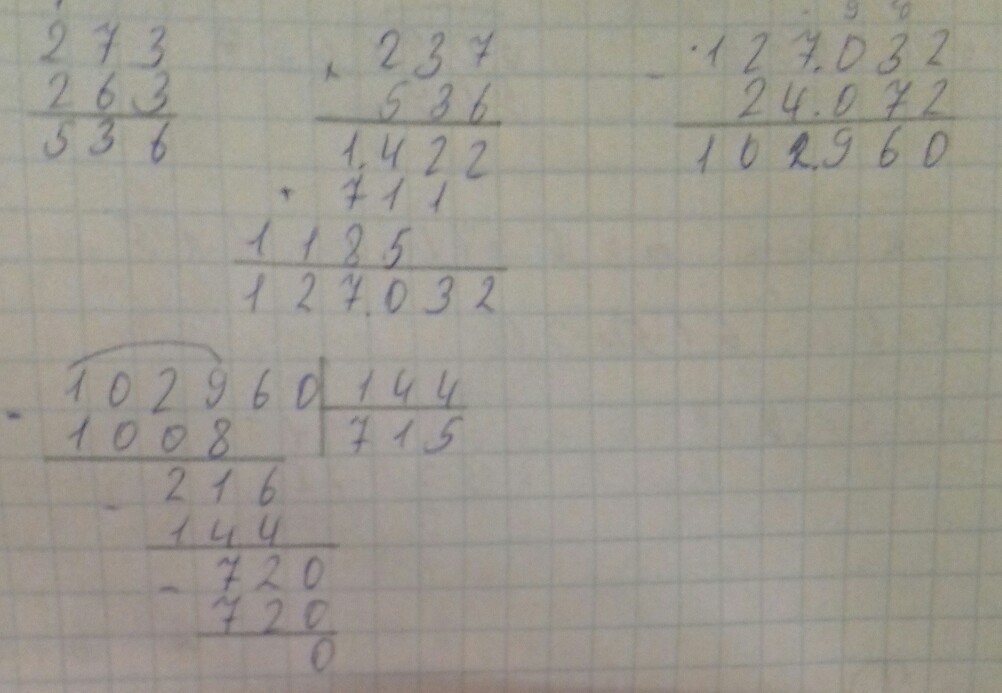 273
263
536
× 237
536
1.422
+ 711
1185
127.032
- 127.032
24.072
102.960
- 102960 | 144
1008 | 715
- 216
144
- 720
720
0